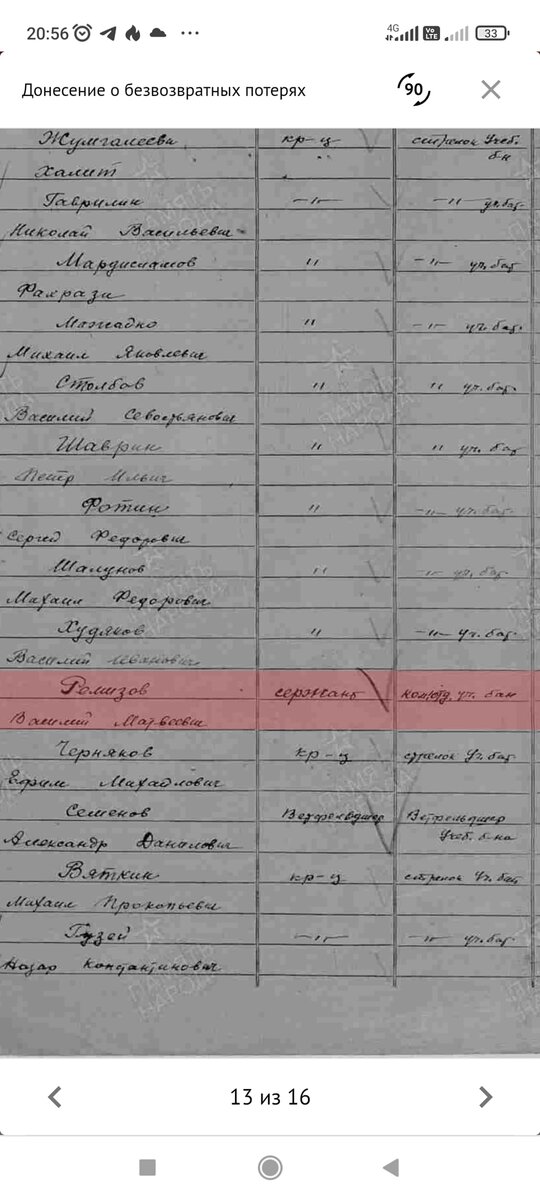 20:56 4G Vo LTE 33
Донесение о безвозвратных потерях 90
Жумгалееви кр-ц стрелок Учеб. бн
Халит
Гаврилин —"— —"— уч.бат.
Николай Васильевич
Мардисламов " —"— уч. бат
Фахрази
Можадко " —"— уч. бат
Михаил Яковлевич
Столбов " " уч. бат.
Василий Севостьянович
Шаврин " " уч. бат
Петр Ильич
Фотин " —"— уч. бат.
Сергей Федорович
Шалунов " —"— уч. бат
Михаил Федорович
Худяков " —"— уч. бат
Василий Иванович
Ремизов сержант ком.отд. уч. бан
Василий Матвеевич
Черняков кр-ц стрелок Уч. бат
Ефим Михайлович
Семенов Ветфельдшер Ветфельдшер
Александр Данилович Учеб. б-на
Вяткин кр-ц стрелок Уч. бат
Михаил Прокопьевич
Гузей —"— —"— уч. бат
Назар Константинович
13 из 16